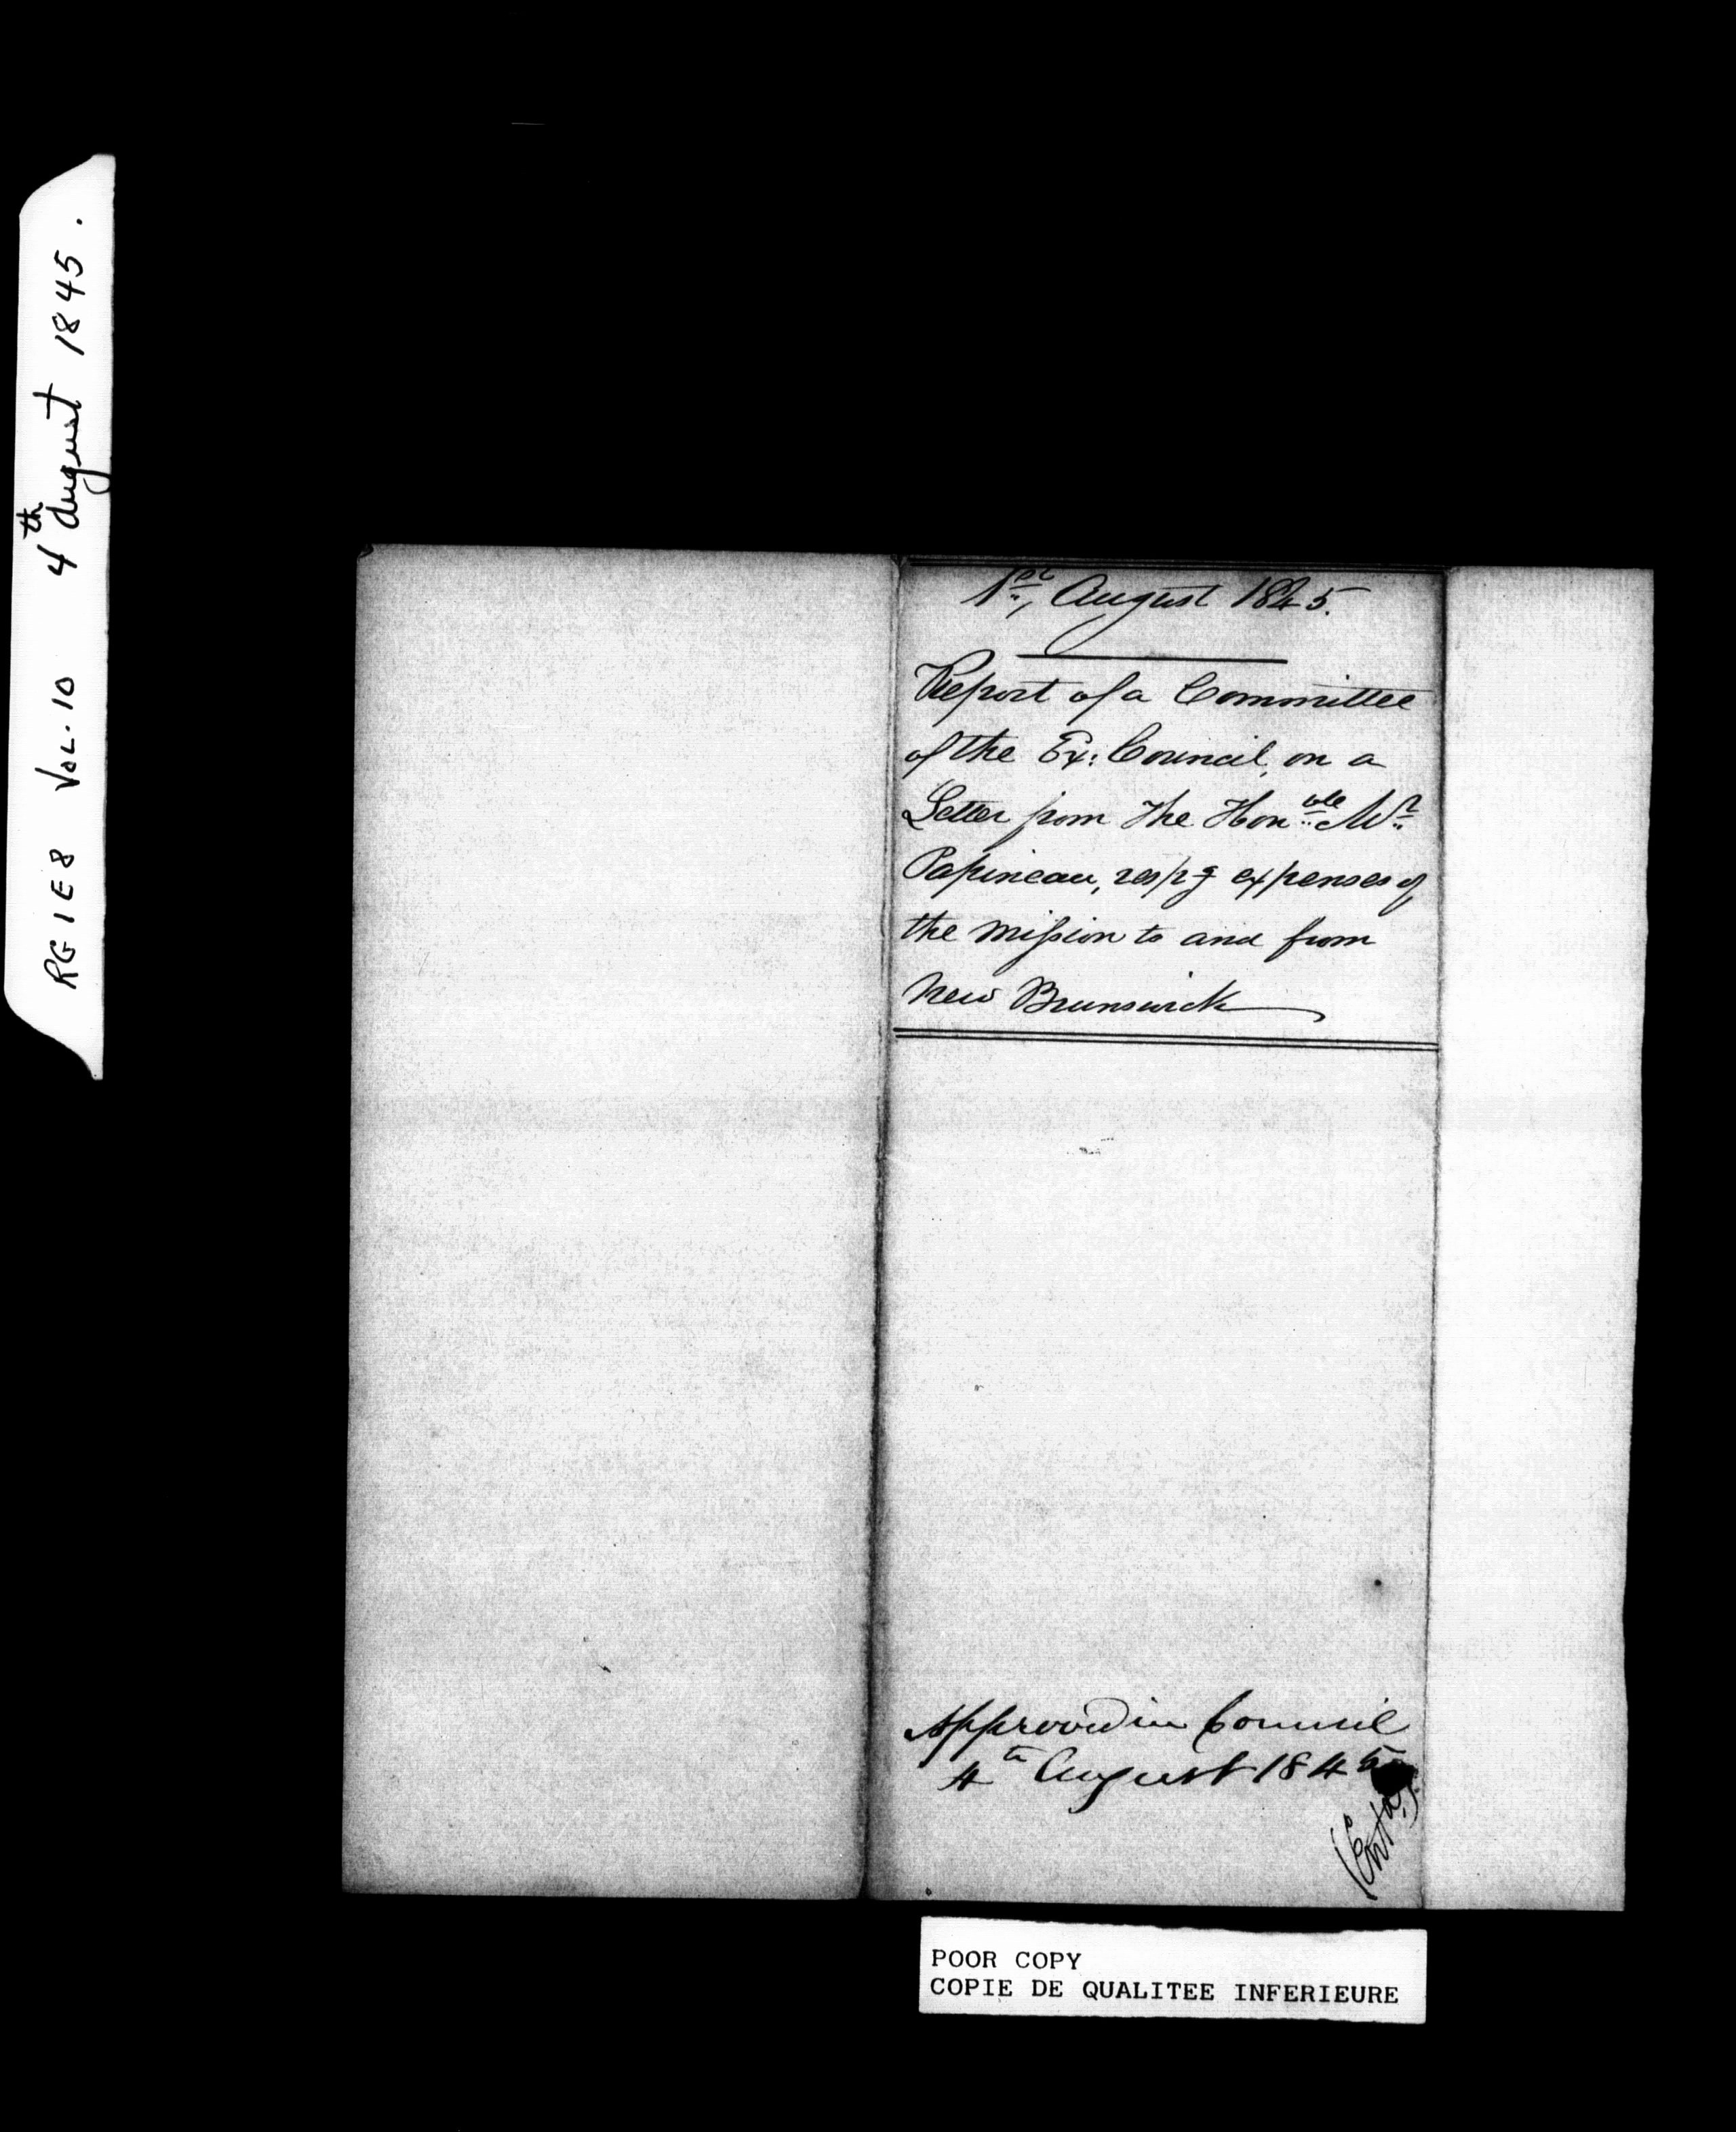 RG 1 E 8 VOL. 10 4th August 1845.
1st, August 1845.
Report of a Committee
of the Ex: Council, on a
Letter from The Honble Mr
Papineau, respg expenses of
the Mission to and from
New Brunswick
Approved in Council
4th August 1845
(Entd.)
POOR COPY
COPIE DE QUALITEE INFERIEURE